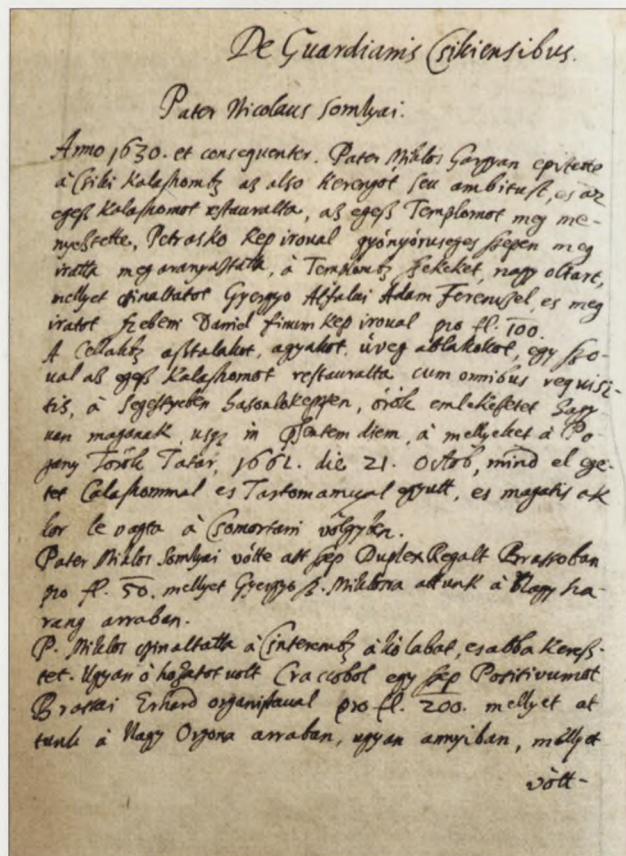 De Guardianis Csikiensibus.
Pater Nicolaus Somlyai.
Anno 1630. et consequenter. Pater Miklos Gargyan epitette
à Csiki Kalastromb az also kerengöt seu ambitust, es az
egesz Kalastromot restauralta, az egesz Templomot meg me-
nyeztette, Petrasko kep iroual gyönyöruseges szepen meg
iratta meg aranyasztatta, à Templomb szekeket, nagy oltart,
mellyet csinaltatot Gyergyo Alfalai Adam Ferencsel, es meg
iratot Szebeni Daniel finum kep iroual pro fl. 100.
A Cellakb asztalakot, agyakot, üveg ablakokot, egy szo-
ual az egesz Kalastromot restauralta cum omnibus requisi-
tis, à Segestyeben hasonlokeppen, örök emlekezetet
magonak, usq in diem, à mellyeket à Po-
gany Török Tatar, 1661. die 21. Octob, mind el ege-
tet Calastrommal es Tartomannyal egyutt, es magatis ak
kor le vagta à Csomortani völgyben.
Pater Miklos Somlyai vötte azt szep Duplex Regalt Brassoban
pro fl. 50. mellyet Gyergyo Sz. Miklosra attunk à Nagy ha-
rang arraban.
P. Miklos csinaltatta à Cinteremb à kö labat, es abba keresz-
tet. Ugyan ö hozatot volt Craccobol egy szep Positivumot
Brassai Erhard organistaual pro fl. 200. mellyet at
tunk à Nagy Orgona arraban, ugyan annyiban, mellyet
vött-